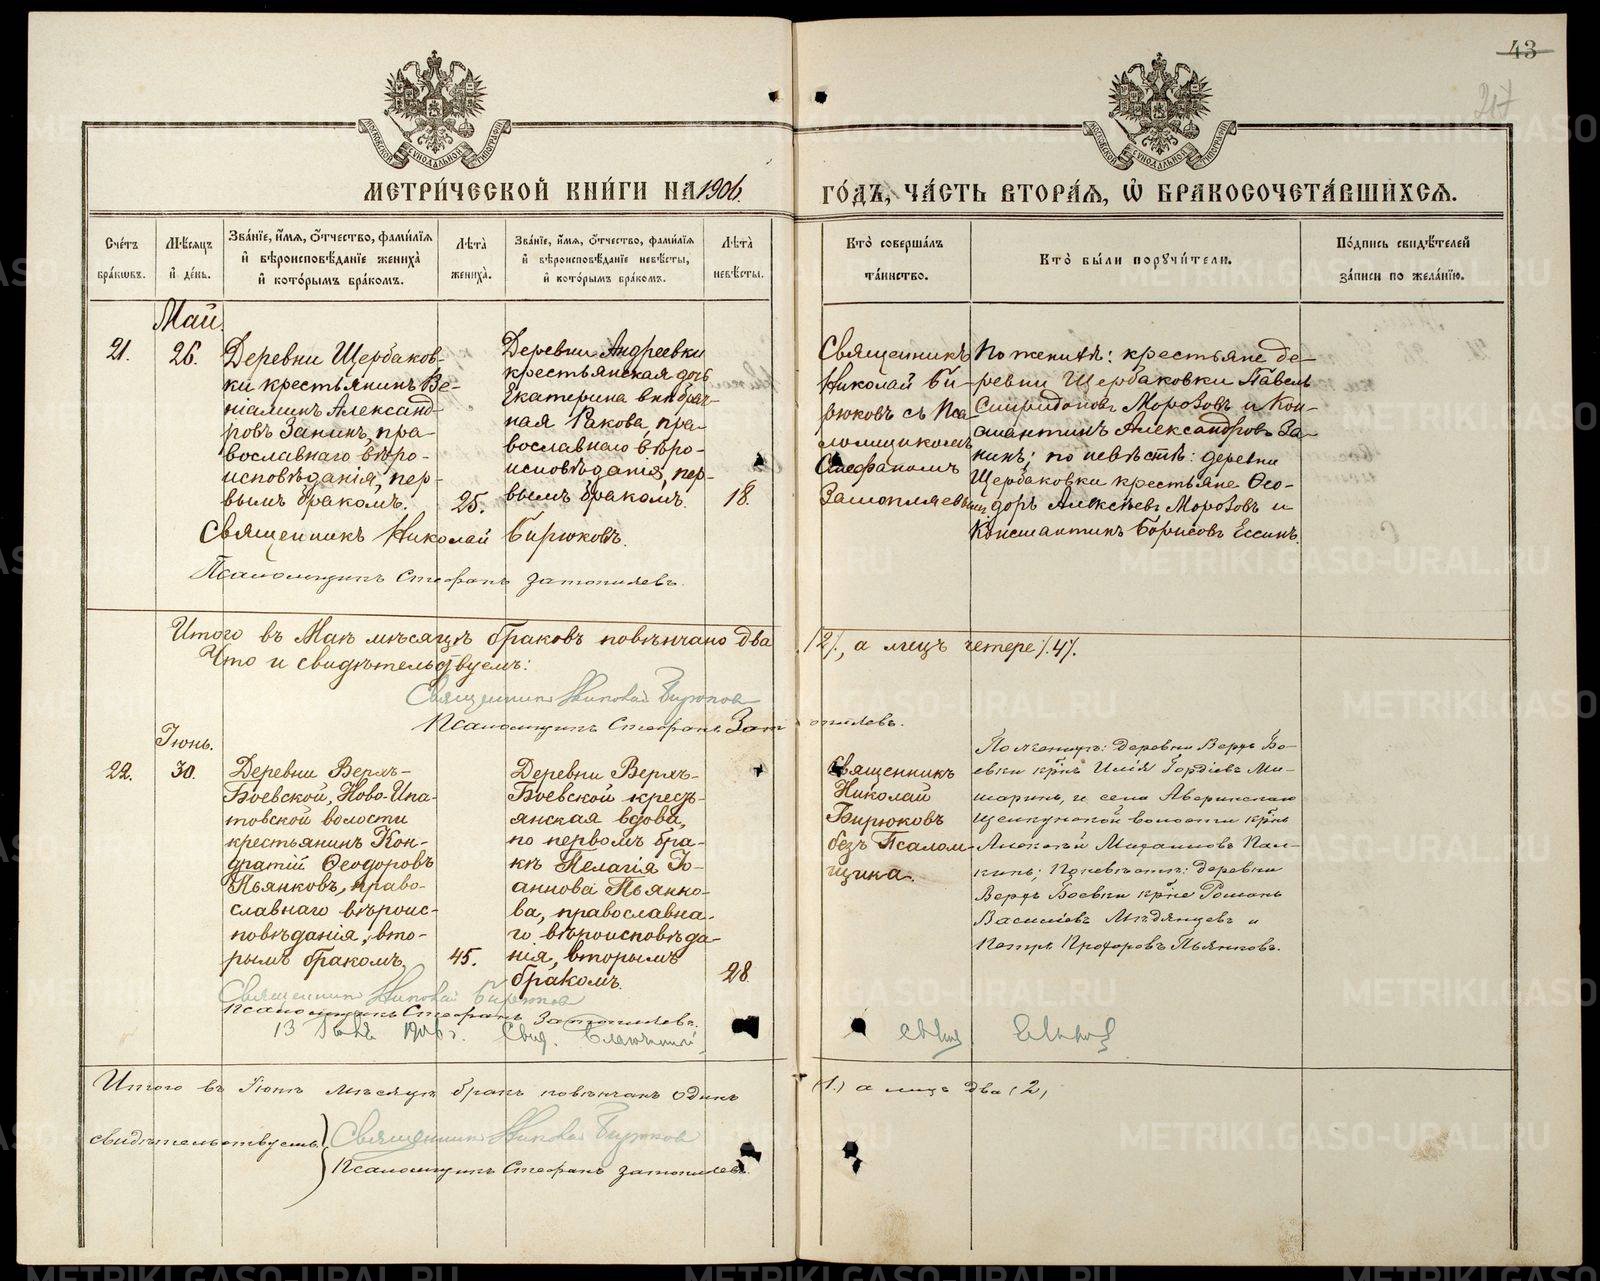 43
217
МОСКОВСКОЙ СѴНОДАЛЬНОЙ ТИПОГРАФІИ
МОСКОВСКОЙ СѴНОДАЛЬНОЙ ТИПОГРАФІИ
МЕТРИ́ЧЕСКОЙ КНИ́ГИ НА 1906. ГО́ДЪ, ЧА́СТЬ ВТОРА́Я, Ѡ҆ БРАКОСОЧЕТА́ВШИХСЯ.
Сче́тъ
бра́кѡвъ.
Мѣ́сяцъ
и҆ де́нь.
Зва́нїе, и҆́мя, ѻ҆́тчество, фами́лїя
и҆ вѣроисповѣ́данїе жениха̀
и҆ кото́рымъ бра́комъ.
Лѣ́та
жениха̀.
Зва́нїе, и҆́мя, ѻ҆́тчество, фами́лїя
и҆ вѣроисповѣ́данїе невѣ́сты,
и҆ кото́рымъ бра́комъ.
Лѣ́та
невѣ́сты.
Кто̀ соверша́лъ
та́инство.
Кто̀ бы́ли порꙋчи́тели.
По́дпись свидѣ́телей
за́писи по жела́нїю.
Май.
21.
26.
Деревни Щербаков-
ки крестьянинъ Ве-
ніаминъ Александ-
ровъ Занинъ, пра-
вославнаго вѣро-
исповѣданія, пер-
вымъ бракомъ.
25.
Деревни Андреевки
крестьянская дочь
Екатерина внѣбрач-
ная Ракова, пра-
вославнаго вѣро-
исповѣданія, пер-
вымъ бракомъ.
18.
Священникъ
Николай Би-
рюковъ съ Пса-
ломщикомъ
Стефаномъ
Затопляевымъ
По женихѣ: крестьяне де-
ревни Щербаковки Павелъ
Спиридоновъ Морозовъ и Кон-
стантинъ Александровъ За-
нинъ; по невѣстѣ: деревни
Щербаковки крестьяне Ѳео-
доръ Алексѣевъ Морозовъ и
Константинъ Борисовъ Ессинъ.
Священникъ Николай Бирюковъ.
Псаломщикъ Стефанъ Затопляевъ.
Итого въ Маѣ мѣсяцѣ браковъ повѣнчано два /2/, а лицъ четере /4/.
Что и свидѣтельствуемъ:
Священникъ Николай Бирюковъ
Псаломщикъ Стефанъ Затопляевъ.
Іюнь.
22.
30.
Деревни Верхъ-
Боевской, Ново-Ипа-
товской волости
крестьянинъ Кон-
дратій Ѳеодоровъ
Пьянковъ, право-
славнаго вѣроис-
повѣданія, вто-
рымъ бракомъ.
45.
Деревни Верхъ-
Боевской кресть-
янская вдова,
по первомъ бра-
кѣ Пелагія Іо-
аннова Пьянко-
ва, православна-
го вѣроисповѣда-
нія, вторымъ
бракомъ.
28.
Священникъ
Николай
Бирюковъ
безъ Псалом-
щика.
По женихѣ: деревни Верхъ Бо-
евки кр-нъ Илія Гордіевъ Ми-
шаринъ, и села Аверинскаго
Щелкунской волости кр-нъ
По невѣстѣ: деревни
Верхъ Боевки кр-не Романъ
Василіевъ Мѣдянцевъ и
Петръ Прохоровъ Пьянковъ.
Священникъ Николай Бирюковъ
Псаломщикъ Стефанъ Затопляевъ.
13 1906 г.
Итого въ Іюнѣ мѣсяцѣ бракъ повѣнчанъ одинъ (1.) а лицъ два (2)
свидѣтельствуемъ
Священникъ Николай Бирюковъ
Псаломщикъ Стефанъ Затопляевъ.
METRIKI.GASO-URAL.RU